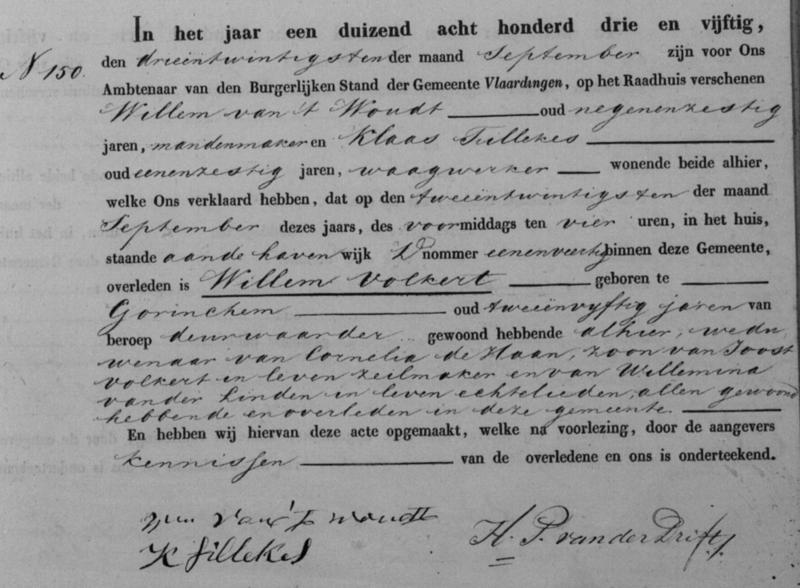 In het jaar een duizend acht honderd drie en vijftig,
N 150. den drieëntwintigsten der maand September zijn voor Ons
Ambtenaar van den Burgerlijken Stand der Gemeente Vlaardingen, op het Raadhuis verschenen
Willem van 't Woudt oud negenenzestig
jaren, mandenmaker en Klaas Tullekes
oud eenenzestig jaren, waagwerker wonende beide alhier,
welke Ons verklaard hebben, dat op den tweeëntwintigsten der maand
September dezes jaars, des voormiddags ten vier uren, in het huis,
staande aande haven wijk D nommer eenenveertig binnen deze Gemeente,
overleden is Willem Volkert geboren te
Gorinchem oud tweeënvyftig jaren van
beroep deurwaarder gewoond hebbende alhier, wedu
wenaar van Cornelia de Haan, zoon van Joost
Volkert in leven zeilmaker en van Willemina
vander Linden in leven echtelieden, allen gewoond
hebbende en overleden in deze gemeente.
En hebben wij hiervan deze acte opgemaakt, welke na voorlezing, door de aangevers
kennissen van de overledene en ons is onderteekend.
Wm van 't woudt
K Tillekes H. P. van der Drift